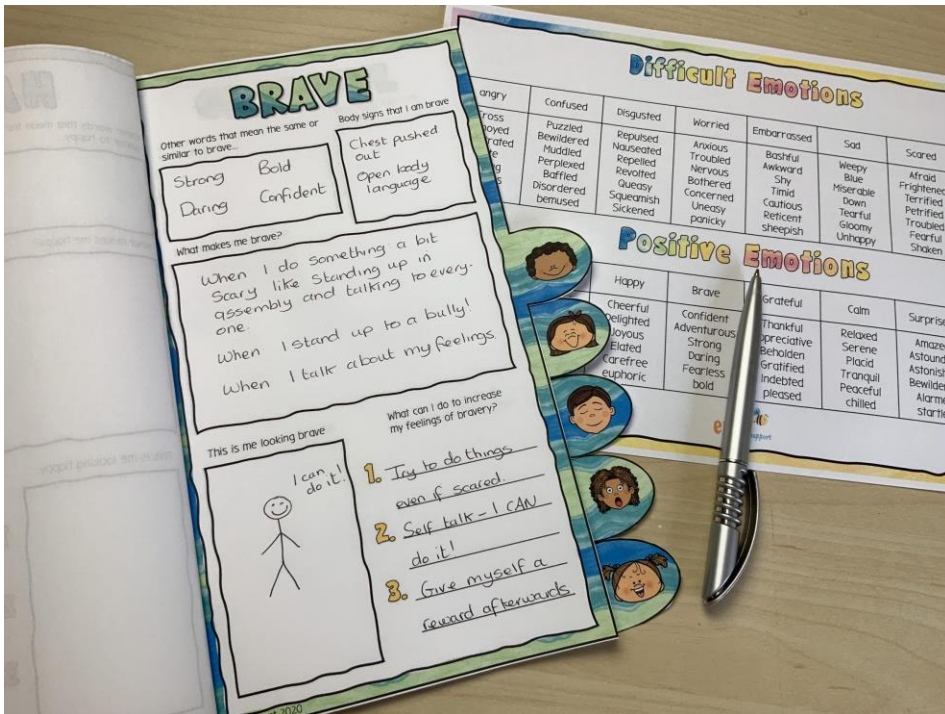 BRAVE
Other words that mean the same or
similar to brave...
Strong Bold
Daring Confident
Body signs that I am brave
Chest pushed
out
Open body
language
What makes me brave?
When I do something a bit
scary like standing up in
assembly and talking to every-
one.
When I stand up to a bully!
When I talk about my feelings.
This is me looking brave
I can
do it!
What can I do to increase
my feelings of bravery?
1. Try to do things
even if scared.
2. Self talk - I CAN
do it!
3. Give myself a
reward afterwards
2020
Difficult Emotions
angry Confused Disgusted Worried Embarrassed Sad Scared
Puzzled
Bewildered
Muddled
Perplexed
Baffled
Disordered
bemused
Repulsed
Nauseated
Repelled
Revolted
Queasy
Squeamish
Sickened
Anxious
Troubled
Nervous
Bothered
Concerned
Uneasy
panicky
Bashful
Awkward
Shy
Timid
Cautious
Reticent
sheepish
Weepy
Blue
Miserable
Down
Tearful
Gloomy
Unhappy
Afraid
Frightene
Terrified
Petrified
Troubled
Fearful
Shaken
Positive Emotions
Happy Brave Grateful Calm Surprise
Cheerful
Delighted
Joyous
Elated
Carefree
euphoric
Confident
Adventurous
Strong
Daring
Fearless
bold
Thankful
ppreciative
Beholden
Gratified
Indebted
pleased
Relaxed
Serene
Placid
Tranquil
Peaceful
chilled
Amaze
Astound
Astonish
Bewilder
Alarme
startl
support